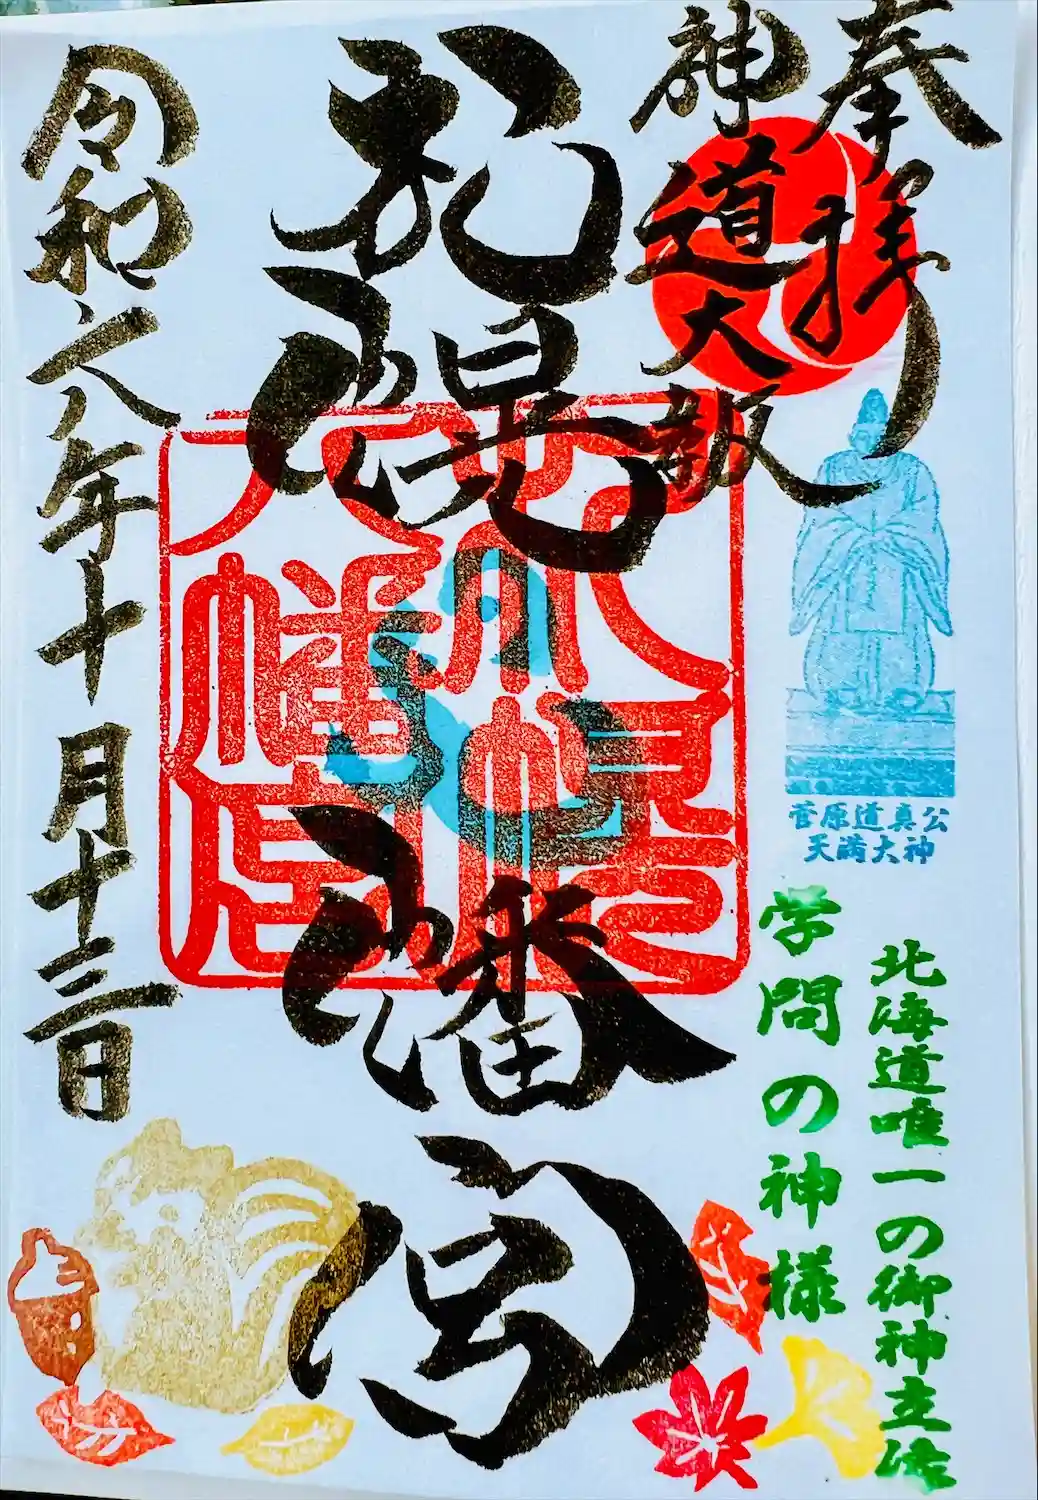 奉拝
神道大教
札幌八幡宮
令和六年十月十三日
菅原道真公
天満大神
北海道唯一の御神立像
学問の神様
札幌
八幡宮